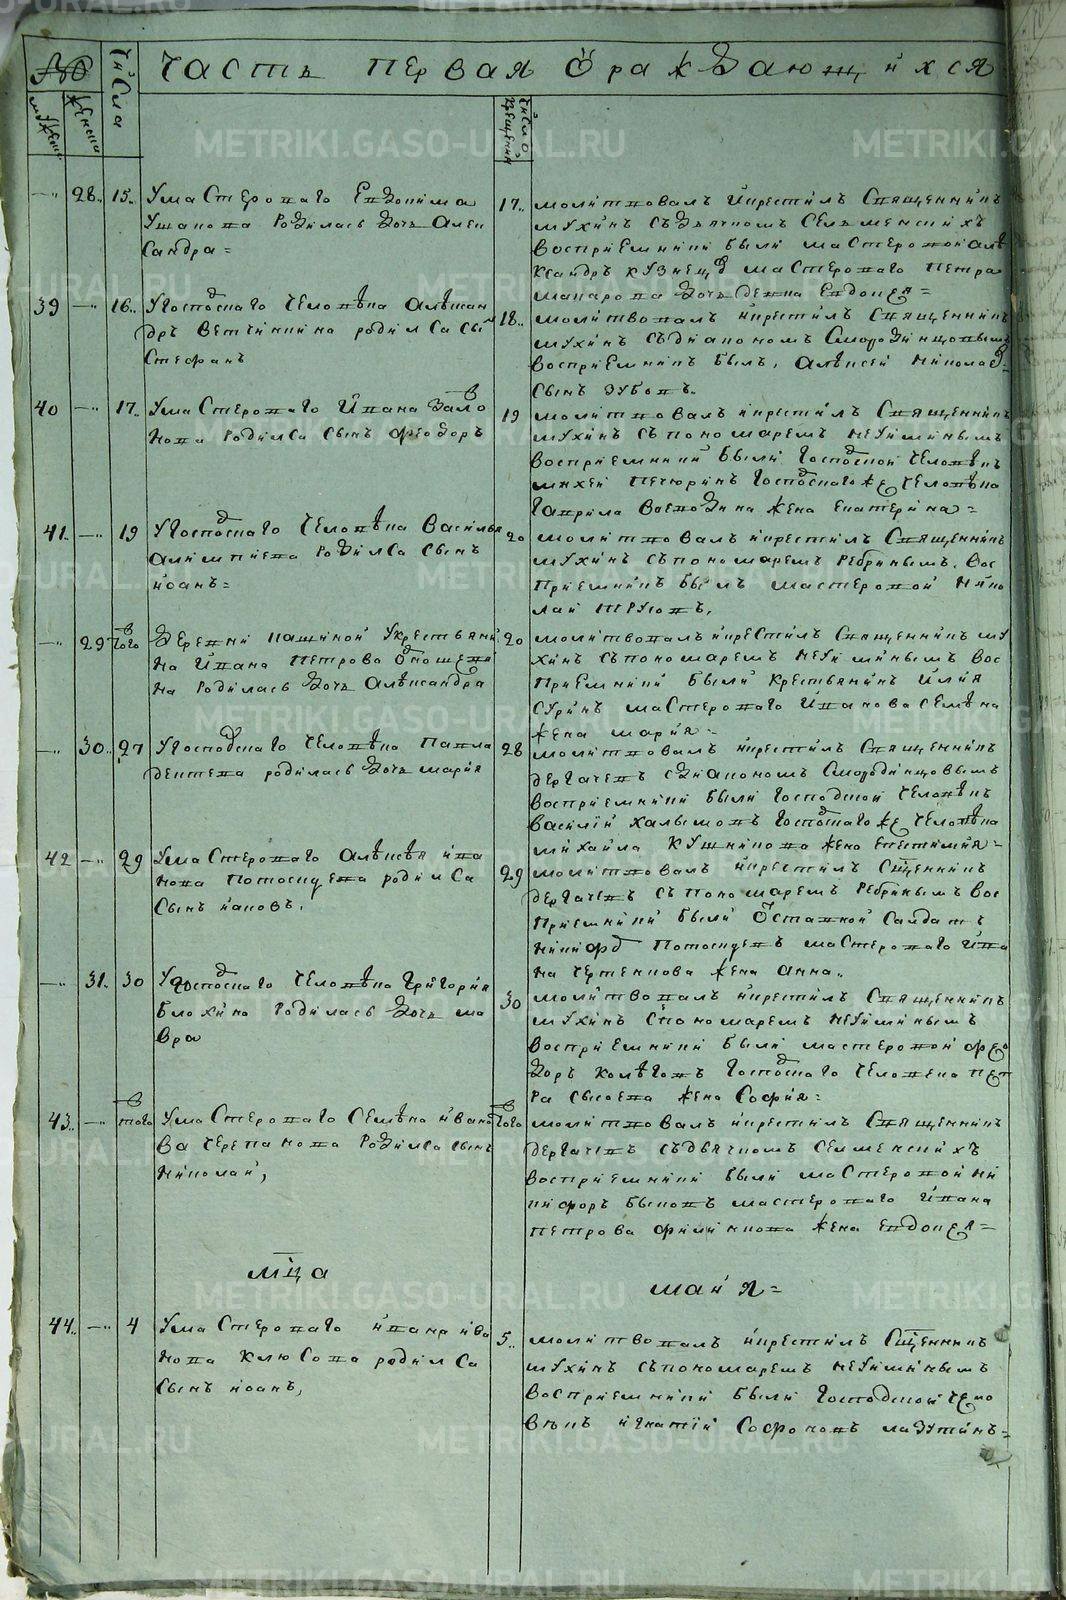 Часть первая ѡ раждающихся
№
Мужеска
Женска
Числа
Число крещенія
28. 15. У мастероваго Евдокима
Ушакова родилась дочь Алек
сандра=
17. молитвовалъ и крестилъ Священникъ
Мухинъ съ дьячкомъ Селменскихъ
воспріемники были мастеровой Алѣ
ксандръ Кузнецов мастероваго Петра
Макарова дочь девка Евдокея=
39 16. У господскаго человѣка Алѣксан
дръ Ветчинкина родилса сынъ
Стефанъ
18. молитвовалъ и крестилъ Священникъ
Мухинъ съ діакономъ Смородинцовымъ
воспріемникъ былъ, Алѣксей Николаев
сынъ Зубовъ.
40 17. У мастероваго Ивана Зало
нова родилса сынъ Феодоръ
19 молитвовалъ и крестилъ Священникъ
Мухинъ съ пономаремъ Неуиминымъ
воспріемники были господской человѣкъ
Михей господскаго же человѣка
Гаврила жена Екатерина=
41. 19 У господскаго человѣка Василья
родилса сынъ
Иоанъ=
20 молитвовалъ и крестилъ Священникъ
Мухинъ съ пономаремъ Ребринымъ. вос
приемникъ былъ мастеровой Нико
лай Трусовъ.
29 того деревни Пашиной у крестьяни
на Ивана Петрова
на родилась дочь Алѣксандра
20 молитвовалъ и крестилъ Священникъ Му
хинъ съ пономаремъ Неуиминымъ вос
приемники были крестьянинъ Илия
Суринъ мастероваго Иванова Семена
жена Мария=
30. 27 У господскаго человѣка Павла
Дектева родилась дочь Мария
28 молитвовалъ и крестилъ Священникъ
Дергачевъ с діакономъ Смородинцовымъ
воспріемники были господской человѣкъ
Василій господскаго же человѣка
Михайла Кушникова жена
42 29 У мастероваго Алѣксѣя Ива
нова Потоскуева родилса
сынъ Иаковъ.
29 молитвовалъ и крестилъ Сщенникъ
Дергачевъ съ пономаремъ Ребринымъ вос
приемники были ѡтставной салдатъ
Никифор Потоскуевъ мастероваго Ива
на Чертенкова жена Анна.
31. 30 У господскаго человѣка Григория
Блохина родилась дочь Ма
вра
30 молитвовалъ и крестилъ Священникъ
Мухинъ с пономаремъ Неуиминымъ
воспріемники были мастеровой Фео
доръ господскаго человека Пет
ра Сысоева жена София=
43. того У мастероваго Семѣна Ивано
ва Черепанова родилса сынъ
Николай,
того молитвовалъ и крестилъ Священникъ
Дергачевъ съ дьячкомъ Селменскихъ
воспріемники были мастеровой Ни
кифоръ Быковъ мастероваго Ивана
Петрова Филинкова жена Евдокея=
мца майя=
44. 4 У мастероваго Ивана Ива
нова Клюсова родилса
сынъ Иоанъ,
5. молитвовалъ и крестилъ Сщенникъ
Мухинъ съ пономаремъ Неуиминымъ
воспріемники были господской чело
вѣкъ Игнатій Софоновъ Лазутинъ=
METRIKI.GASO-URAL.RU